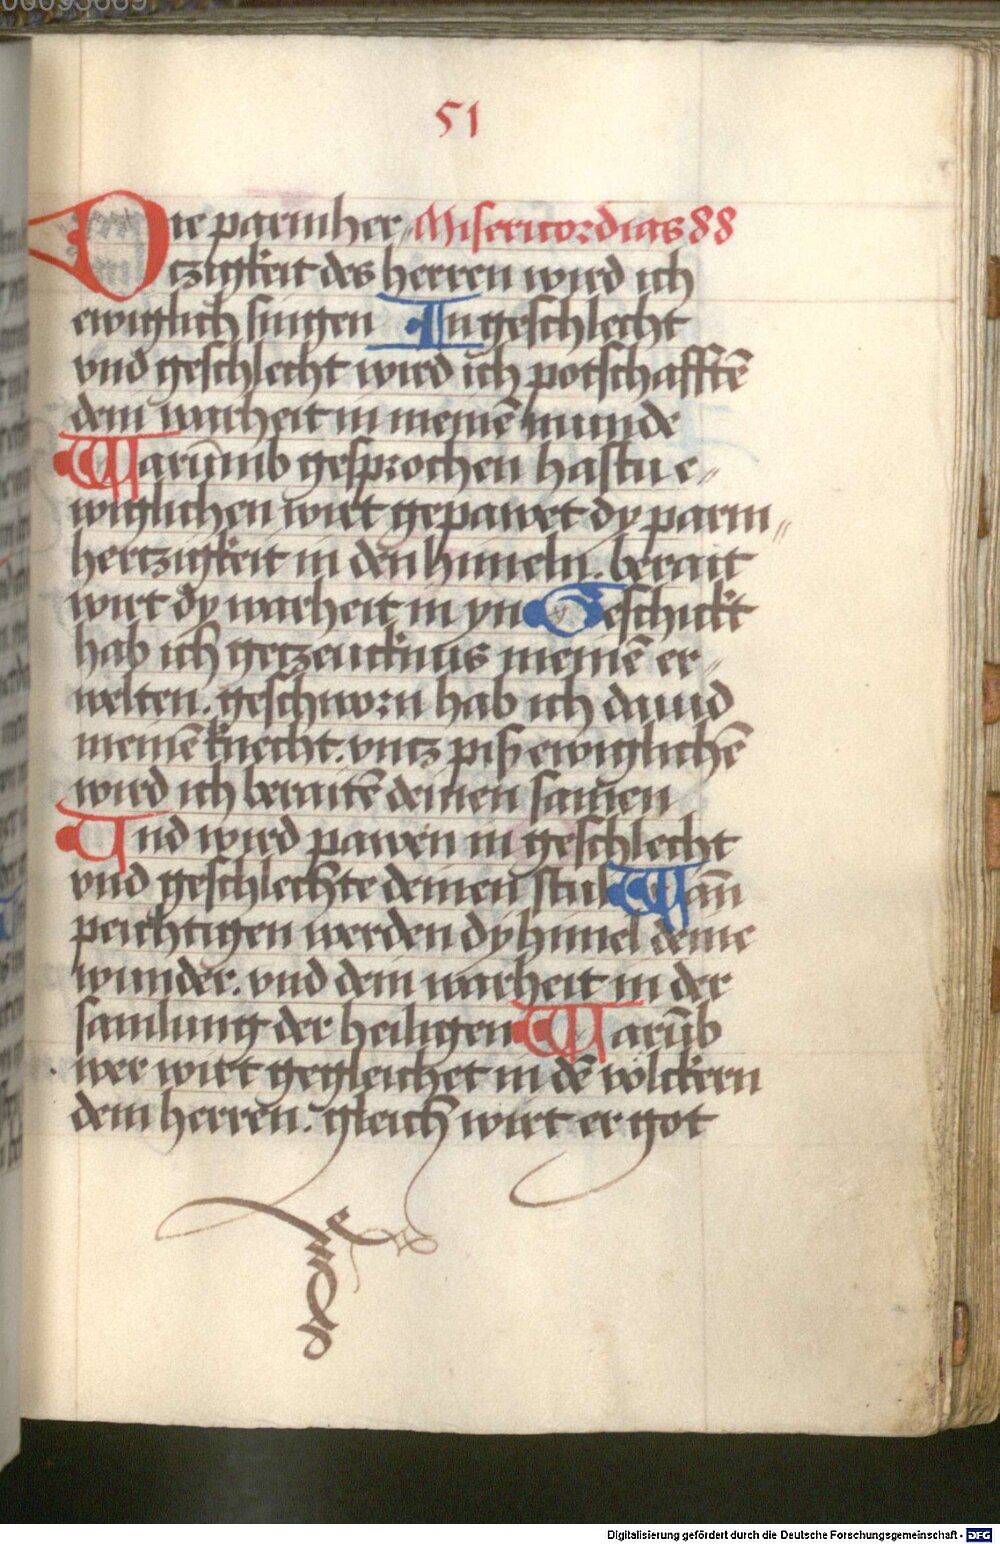 00093669
51
Die parmher⸗ Misericordias 88
tzigkeit des herren wird ich
ewiglich singen In geschlecht
vnd geschlecht wird ich potschafftē
dein warheit in meinē munde
Warūmb gesprochen hastu e⸗
wiglichen wirt gepawet dy parm⸗
hertzigkeit in den himeln. berait
wirt dy warheit in yn Geschickt
hab ich getzeucknus meinē er⸗
welten. geschworn hab ich dauid
meinē knecht. vntz piß ewiglichē
wird ich beraitē deinen samen
Vnd wird pawen in geschlecht
vnd geschlechte deinen stul Wan̄
peichtigen werden dy himel deine
wunder. vnd dein warheit in der
samlung der heiligen Warūb
wer wirt gegleichet in dē wolckern
dem herren. gleich wirt er got
Digitalisierung gefördert durch die Deutsche Forschungsgemeinschaft - DFG